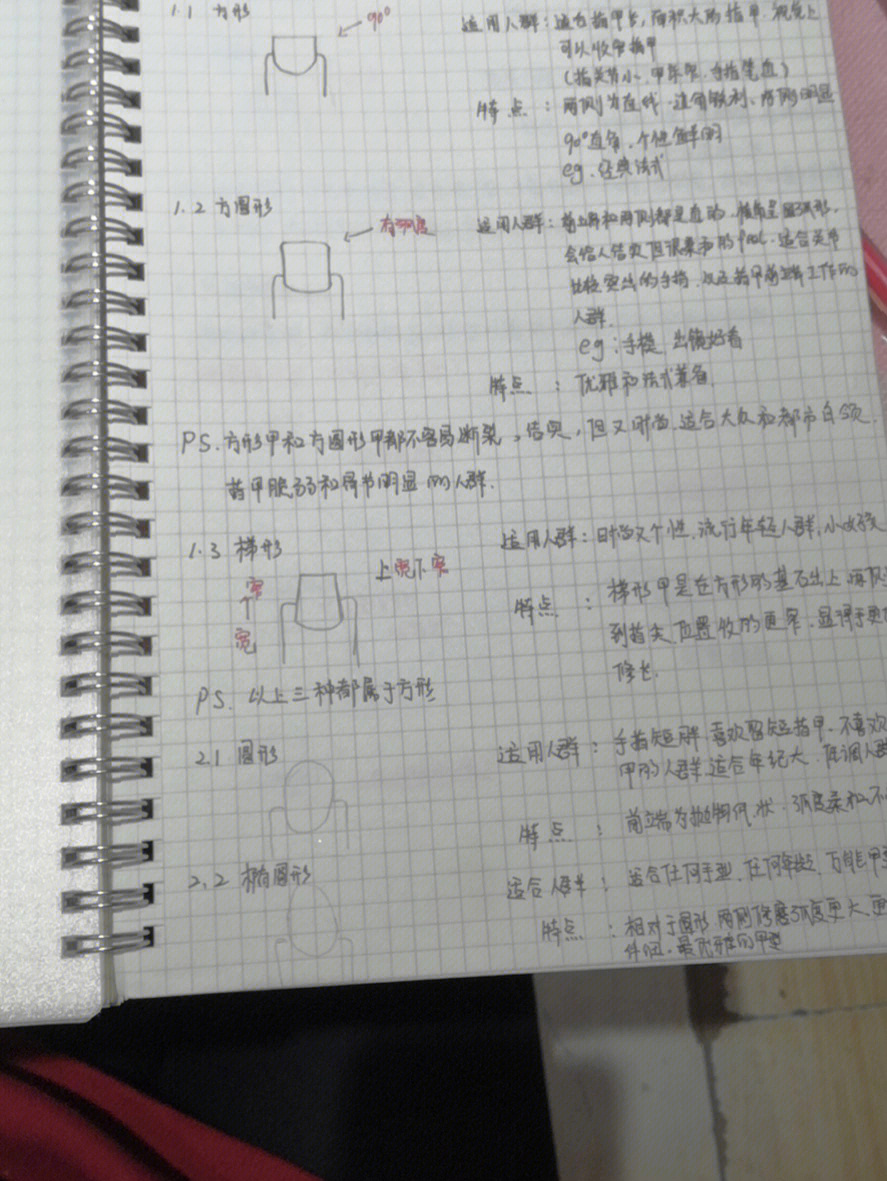 1.1 方形
90°
适用人群：适合指甲长，面积大的指甲.视觉上
可以收窄指甲
(指关节小、甲床窄、手指笔直)
特点：两侧为直线.直角锐利、两侧明显
90°直角、个性鲜明
eg.经典法式
1.2 方圆形
有弧度
适用人群：前端和两侧都是直的.呈圆弧形.
会给人结实但很柔和的feel.适合关节
比较突出的手指.以及指甲前端工作的
人群.
eg：手模 出镜好看
特点：优雅和法式兼备.
PS.方形甲和方圆形甲都不容易断裂，结实，但又时尚.适合大众和都市白领.
指甲脆弱和骨节明显的人群.
1.3 梯形
窄
宽
上窄下宽
适用人群：时尚又个性.流行年轻人群，小女孩
特点：梯形甲是在方形的基础上.两侧
到指尖位置收的更窄.显得手更
修长.
PS.以上三种都属于方形
2.1 圆形
适用人群：手指短胖.喜欢留短指甲.不喜欢
甲的人群.适合年纪大.低调人群
特点：前端为抛物线状.弧度柔和不
2.2 椭圆形
适合人群：适合任何手型、任何年龄、万能甲型
特点：相对于圆形.两侧修磨弧度更大.更
最优雅的甲型